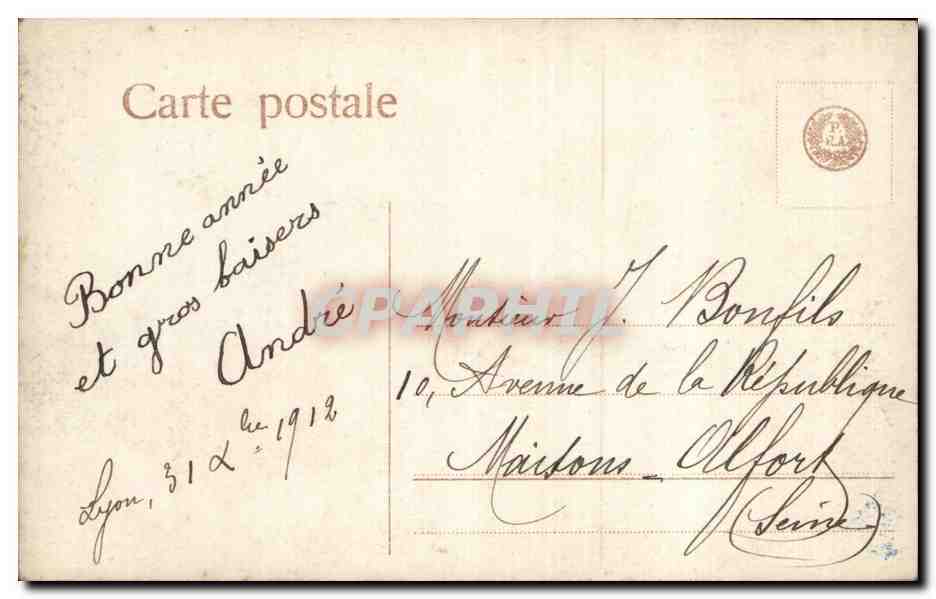 Carte postale
P.
S.A.
Bonne année
et gros baisers
André
Lyon, 31 Xbre 1912
Monsieur J. Bonfils
10, Avenue de la République
Maisons-Alfort
(Seine)
CPAPHIL